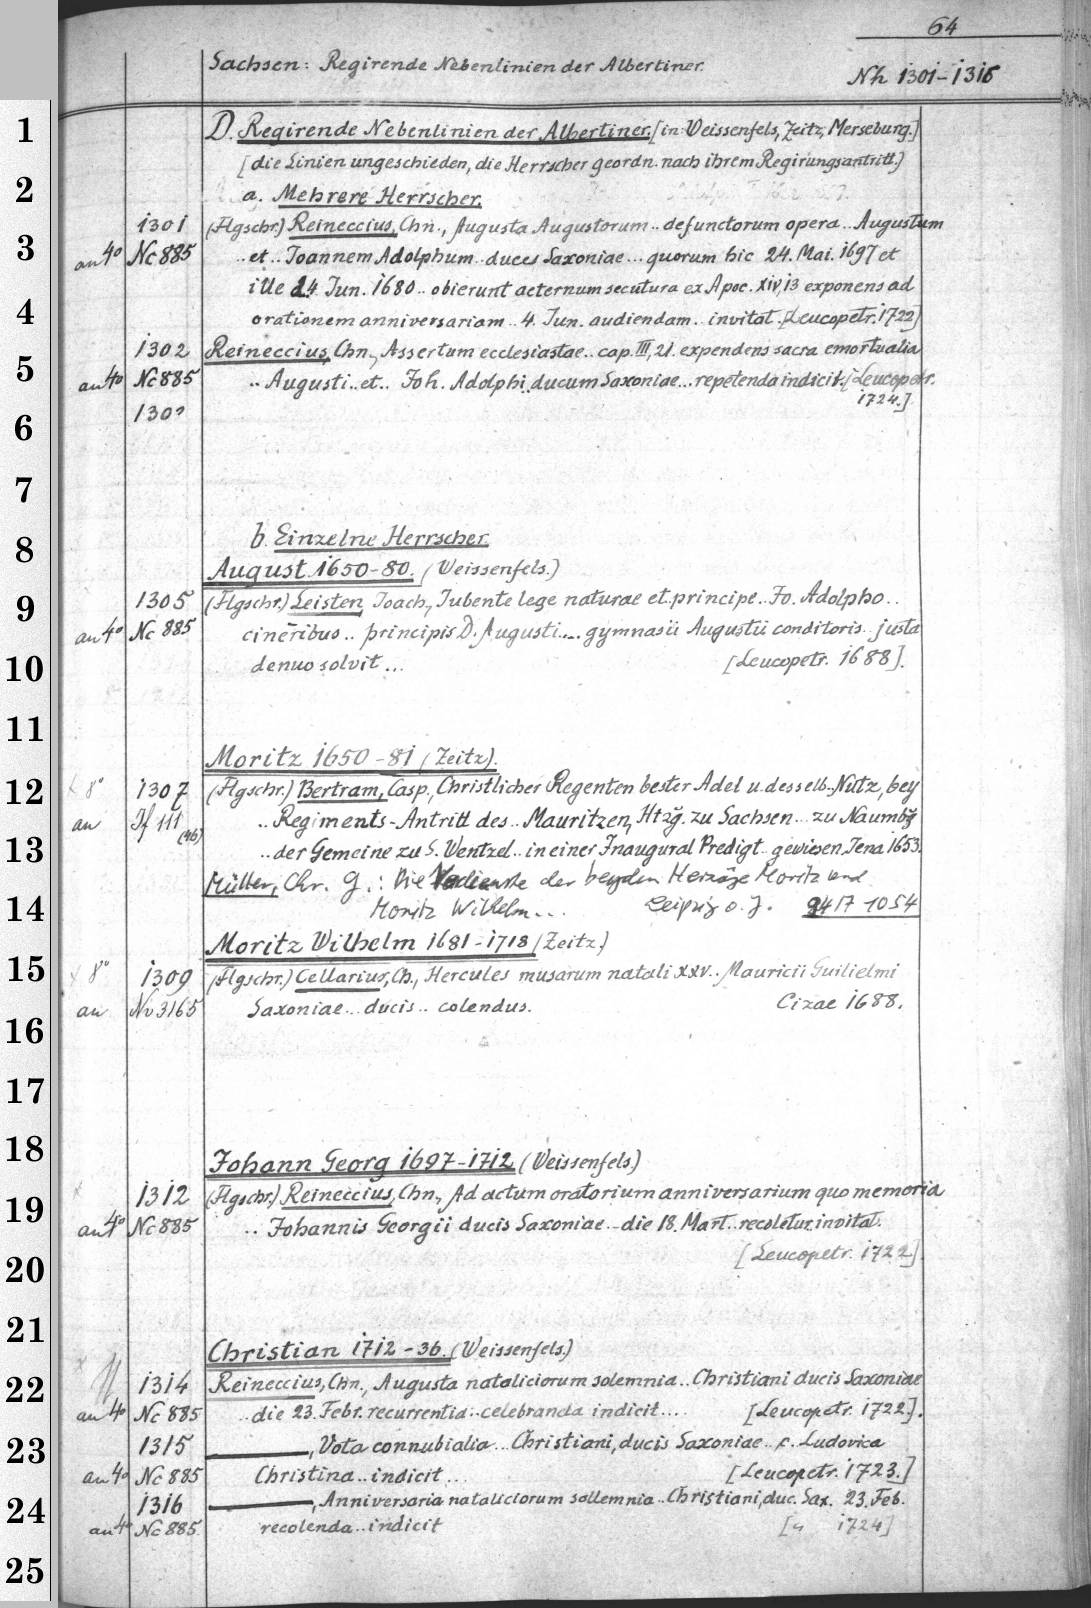 64
Sachsen: Regirende Nebenlinien der Albertiner.
Nh 1301-1316
1
D. Regirende Nebenlinien der Albertiner. [in: Weissenfels, Zeitz, Merseburg.]
[die Linien ungeschieden, die Herrscher geordn. nach ihrem Regirungsantritt.]
2
a. Mehrere Herrscher.
1301 (Flgschr.) Reineccius, Chn., Augusta Augustorum .. defunctorum opera .. Augustum
3
an 4° Nc 885 .. et .. Joannem Adolphum .. duces Saxoniae ... quorum hic 24. Mai. 1697 et
ille 14 Jun. 1680 .. obierunt aeternum secutura ex Apoc. XIV, 13 exponens ad
4
orationem anniversariam .. 4. Jun. audiendam .. invitat. [Leucopetr. 1722]
1302 Reineccius, Chn., Assertum ecclesiastae .. cap. III, 21. expendens sacra emortualia
5
an 4° Nc 885 .. Augusti .. et .. Joh. Adolphi .. ducum Saxoniae ... repetenda indicit. [Leucopetr.
1724.]
130?
6
7
8
b. Einzelne Herrscher.
August 1650-80. (Weissenfels.)
9
1305 (Flgschr.) Leisten, Joach., Jubente lege naturae et principe .. Jo. Adolpho ..
an 4° Nc 885 cineribus .. principis D. Augusti .... gymnasii Augustii conditoris .. justa
10
denuo solvit ... [Leucopetr. 1688].
11
Moritz 1650-81 (Zeitz).
12
x 8° 1307 (Flgschr.) Bertram, Casp., Christlicher Regenten bester Adel u. desselb. Nutz, bey
an Jf 111 (46) .. Regiments-Antritt des .. Mauritzen, Htzg. zu Sachsen ... zu Naumbg
13
.. der Gemeine zu S. Wentzel .. in einer Inaugural Predigt .. gewiesen. Jena 1653.
Müller, Chr. G.: Die Verdienste der beyden Herzöge Moritz und
14
Moritz Wilhelm ... Leipzig o. J. 9417 1054
Moritz Wilhelm 1681-1718 (Zeitz.)
15
x 8° 1309 (Flgschr.) Cellarius, Ch., Hercules musarum natali XXV .. Mauricii Guilielmi
an Nv 3165 Saxoniae ... ducis .. colendus. Cizae 1688.
16
17
18
Johann Georg 1697-1712 (Weissenfels)
19
x 1312 (Flgschr.) Reineccius, Chn., Ad actum oratorium anniversarium quo memoria
an 4° Nc 885 .. Johannis Georgii ducis Saxoniae .. die 18. Mart. .. recoletur. invitat.
20
[Leucopetr. 1722].
21
Christian 1712-36. (Weissenfels.)
22
x 1314 Reineccius, Chn., Augusta nataliciorum solemnia .. Christiani ducis Saxoniae
an 4° Nc 885 .. die 23. Febr. recurrentia .. celebranda indicit .... [Leucopetr. 1722].
23
1315 ———, Vota connubialia ... Christiani, ducis Saxoniae .. c. Ludovica
an 4° Nc 885 Christina .. indicit ... [Leucopetr. 1723.]
24
1316 ———, Anniversaria nataliciorum sollemnia .. Christiani, duc. Sax. 23. Feb.
an 4° Nc 885 recolenda .. indicit [" 1724]
25